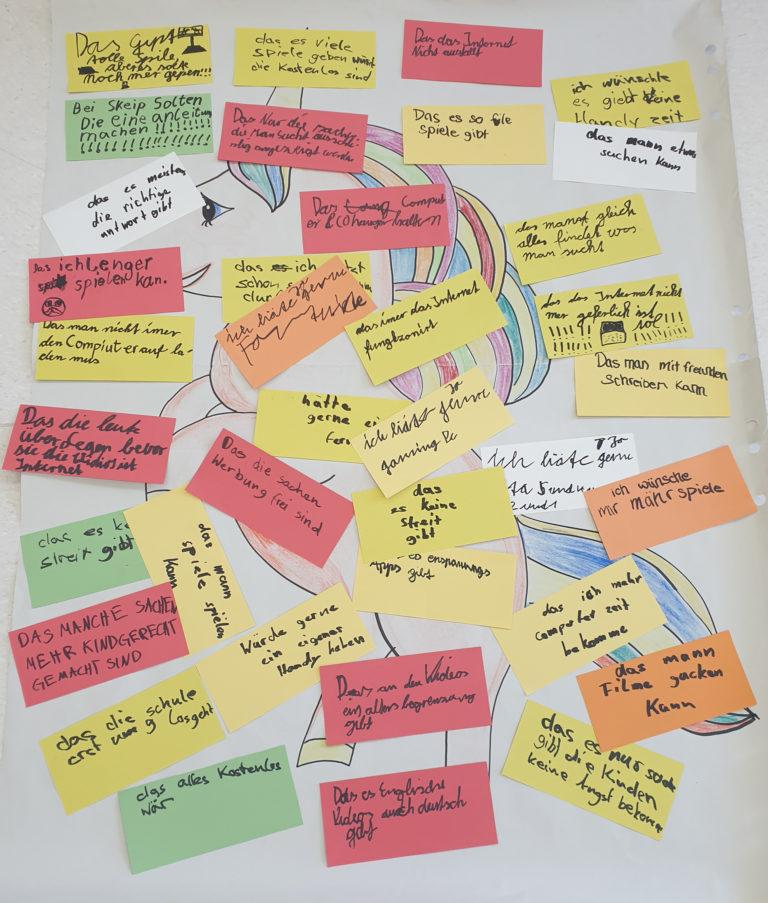 Das Gypt
tolle spile
aber es solte
noch mer geben!!!
das es viele
Spiele geben würst
die Kostenlos sind
Das das Internet
Nicht ausfällt
ich wünschte
es giebt keine
Handy zeit
Bei Skeip Solten
Die eine anleitung
machen !!!!!!!!!
Das Nur die sachen
die man sucht
angezeigt werden
Das es so file
spiele gibt
das mann etwas
suchen kann
das es meistens
die richtige
antwort gibt
Das Comput
er
das mann gleich
alles findet was
man sucht
Das ich Lenger
spielen kan.
das es ich
schon
dur
ich häte gerne
das imer das Internet
fungkzonirt
das das Internet nicht
mer geferlich ist
!!!!! sol !!!!
Das man nicht imer
den Compiuter auf la-
den mus
Das man mit freunden
schreiben kann
Das die leute
überlegen bevor
sie die Widios ist
Internet
hätte
gerne ei
fern
ich hätt gerne
gaming Pc
Das die sachen
Werbung frei sind
das
es keine
Streit
gibt
ich häte gerne
ich wünsche
mir mähr spiele
das es ke
streit gibt
das mann
spiele spielen
kann
Apps
gibt
DAS MANCHE SACHEN
MEHR KINDGERECHT
GEMACHT SIND
Würde gerne
ein eigenes
Handy haben
das ich mehr
computer zeit
bekomme
Dass an den Videos
ein altersbegrenzung
gibt
das mann
Filme gucken
Kann
das die schule
erst um 9 losgeht
das es nur sachen
gibt die Kinden
keine Angst bekommen
das alles Kostenlos
wär
Das es Englische
Videos auch deutsch
gibt